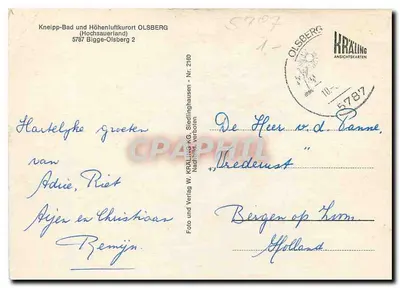 Kneipp-Bad und Höhenluftkurort OLSBERG
(Hochsauerland)
5787 Bigge-Olsberg 2
5787
1-
OLSBERG
10.
5787
KRÄLING
ANSICHTSKARTEN
Hartelijke groeten
van
Adrie, Riet
Arjen en Christiaan
Remijn.
Foto und Verlag W. KRÄLING KG, Siedlinghausen - Nr. 2183
Nachdruck verboten
CPAPHIL
De Heer v.d. Panne,
„Vrederust"
Bergen op Zoom
Holland